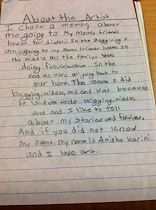 About the Artist
I chose a memory about
me going to my moms friends
house for dinner. In the beginning I
am going to my moms friends house. In
the middle all the familys were
doing fire crackers. In the
end we were all going back to
our home. The reason I did
begging, middle, and end was because
it
begging, middle,
and end. I like to tell
about my stories and fairies.
And if you did not know
my name, my name is Anisha Harini
and I love art.